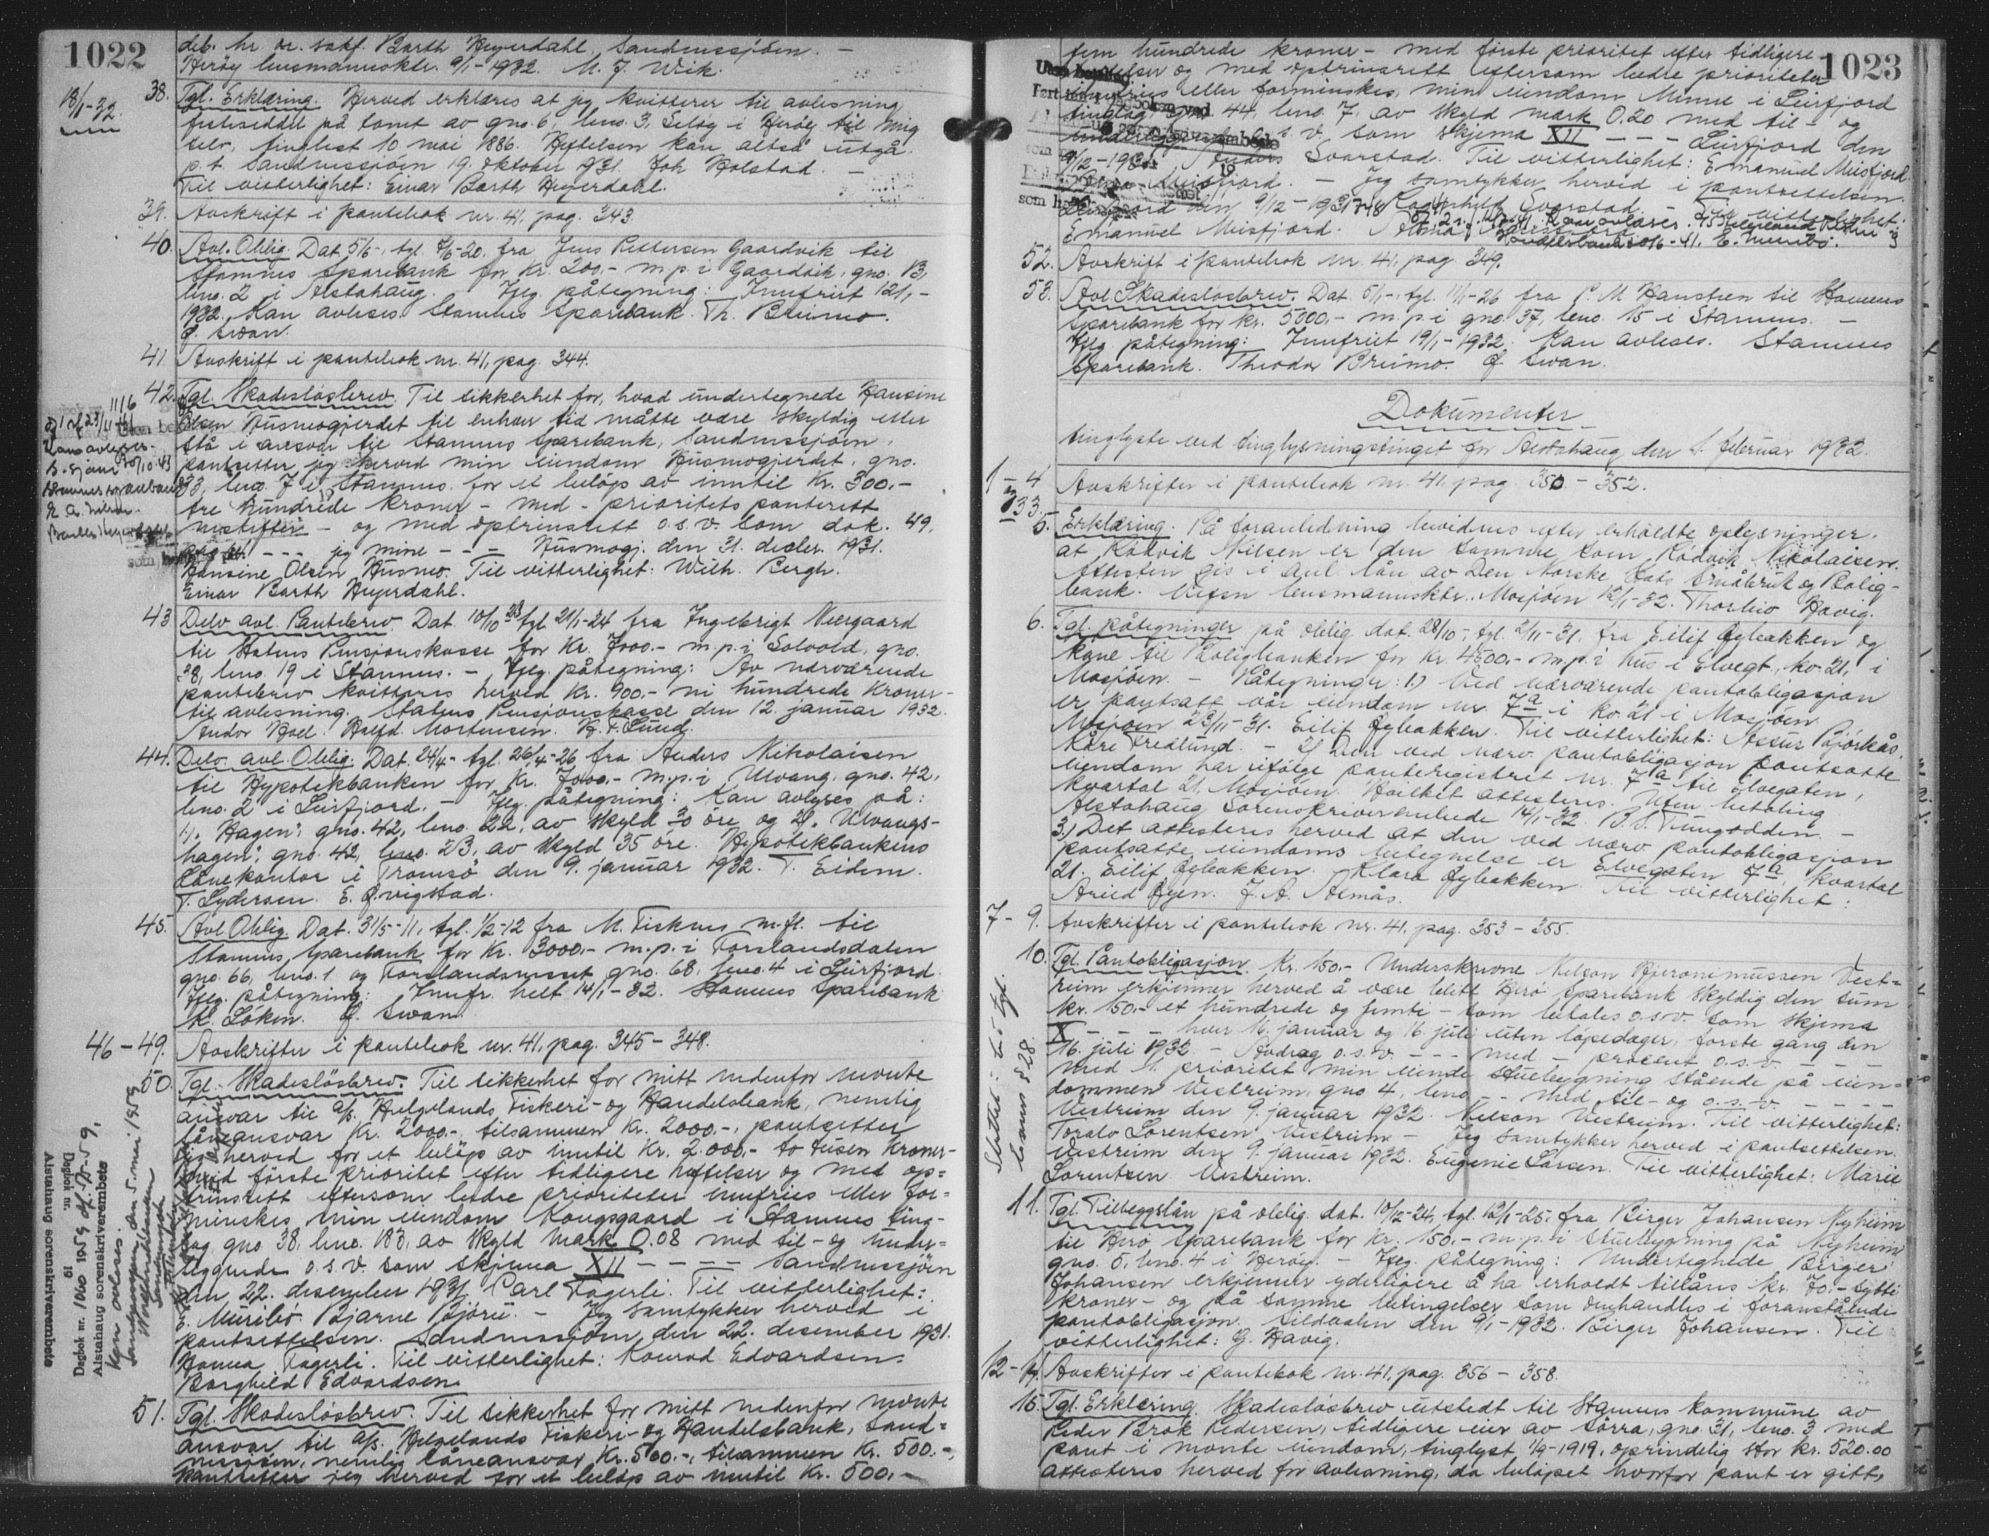 1022
deb. hr or. sakf. Barth Heyerdahl, Sandnessjöen. —
Heröy lensmannsktr. 9/1-1932. M. J. Wik.
18/1-32.
38. Tgl. Erklæring. Herved erklæres at jeg kvitterer til avlesning
festeseddel på tomt av gno. 6, bno. 3, Seløy i Herøy til mig
selv, tinglest 10 mai 1886. Heftelsen kan altså utgå.
p.t. Sandnessjöen 19 oktober 1931. Joh Holstad. —
Til vitterlighet: Einar Barth Heyerdahl.
39. Avskrift i pantebok nr. 41, pag. 343.
40. Avl. Oblig. Dat. 5/6-, tgl. 7/6-20. fra Jens Pettersen Gaardvik til
Stamnes Sparebank for kr. 200,- m.p. i Gaardvik, gno. 13,
bno. 2 i Alstahaug. Tgl. påtegning: Innfriet 12/1,-
1932. Kan avleses. Stamnes Sparebank. Th. Breimo.
O. Swan.
41. Avskrift i pantebok nr. 41, pag. 344.
42. Tgl. Skadesløsbrev. Til sikkerhet for, hvad undertegnede Hansine
Olsen Husmogjerdet til enhver tid måtte være skyldig eller
stå i ansvar til Stamnes Sparebank, Sandnessjöen,
pantsetter jeg herved min eiendom Husmogjerdet, gno.
33, bno. 7 i Stamnes for et beløp av inntil kr. 300.-
tre hundrede kroner - med - prioritets panterett
nestefter - og med optrinsrett o.s.v. som dok. 49.
--- jeg mine --- Husmogj. den 31. decbr. 1931.
Hansine Olsen Husmo. Til vitterlighet: Wilh. Bergh.
Einar Barth Heyerdahl.
43. Delv. avl. Pantebrev. Dat. 10/10 23 tgl. 21/1-24 fra Ingebrigt Neergaard
til Statens Pensjonskasse for kr. 7000.- m.p. i Solvold, gno.
38, bno. 19 i Stamnes. - Tgl. påtegning: Av nærværende
pantebrev kvitteres herved kr. 900.- ni hundrede kroner -
til avlesning. Statens Pensjonskasse den 12. januar 1932.
Andor Hoel. Halfd. Mortensen. H. F. Lund.
44. Delv. avl. Oblig. Dat. 24/4- tgl. 26/4-26 fra Anders Nikolaisen
til Hypotekbanken for kr. 7000.- m.p. i Ulvang, gno. 42,
bno. 2 i Leirfjord. - Tgl. påtegning: Kan avlyses på:
1). Hagen, gno. 42, bno. 22, av skyld 30 öre, og 2). Ulvangs-
hagen, gno. 42, bno. 23, av skyld 35 öre. Hypotekbankens
Lånekontor i Tromsö den 9. januar 1932. T. Eidem.
T. Sydersen. E. Qvigstad.
45. Avl. Oblig. Dat. 31/5-11, tgl. 1/2-12 fra M. Fiskum m.fl. til
Stamnes Sparebank for kr. 3000.- m.p. i Forslandsdalen
gno. 66, bno. 1 og Forslandsneset gno. 68, bno. 4 i Leirfjord.
Tgl. påtegning: Innfr. helt 14/1-32. Stamnes Sparebank
K. Löken. O. Swan.
46-49. Avskrifter i pantebok nr. 41, pag. 345 - 348.
50. Tgl. Skadeslösbrev. Til sikkerhet for mitt nedenfor nevnte
ansvar til a/s. Helgelands Fiskeri- og Handelsbank, nemlig
låneansvar kr. 2000.-, tilsammen kr. 2000.-, pantsetter
jeg herved for et beløp av inntil kr. 2.000.- to tusen kroner-
med förste prioritet efter tidligere heftelser og med op-
trinsrett eftersom bedre prioriteter innfries eller for-
minskes, min eiendom Kongsgaard i Stamnes ting-
lag gno 38, bno. 183, av skyld mark 0.08 med til- og under-
liggende o.s.v. som skjema XII ---- Sandnessjöen
den 22. desember 1931 Carl Fagerli. Til vitterlighet:
E. Meiribö. Bjarne Björu. - Jeg samtykker herved i
pantsettelsen. Sandnessjöen den 22. desember 1931.
Hanna Fagerli. Til vitterlighet: Konrad Edvardsen.
Borghild Edvardsen.
51. Tgl. Skadeslösbrev. Til sikkerhet for mitt nedenfor nevnte
ansvar til a/s. Helgelands Fiskeri- og Handelsbank, Sand=
nessjöen, nemlig låneansvar kr. 500.-, tilsammen kr. 500.-,
pantsetter jeg herved for et beløp av inntil kr. 500.-
Dagbok nr. 1060 1959 of. 5/5-59.
Alstahaug sorenskriverembete
Kan avleses.
Sandnessjøen den 5. mai 1959
Dagbok nr. 19
Alstahaug sorenskriverembete
1023
fem hundrede kroner - med förste prioritet efter tidligere
heftelser og med optrinsrett eftersom bedre prioriteter
innfries eller forminskes, min eiendom Minne i Leirfjord
tinglag, gno 44, bno. 7, av skyld mark 0.20 med til- og
underliggende o.s.v. som skjema XII --- Leirfjord den
9/12-1931. Anders Svarstad. Til vitterlighet: Emanuel Meisfjord.
Meisfjord. - Jeg samtykker herved i pantsettelsen.
Leirfjord den 9/12-1931. Ragnhild Svarstad. - Til vitterlighet:
Emanuel Meisfjord.
52. Avskrift i pantebok nr. 41, pag. 349.
53. Avl. Skadeslösbrev. Dat. 5/1-, tgl. 11/1-26 fra P. M. Hanssen til Stamnes
Sparebank for kr. 5000.- m.p. i gno. 37, bno. 15 i Stamnes. -
Tgl. påtegning: Innfriet 19/1-1932. Kan avleses. Stamnes
Sparebank. Theodor Breimo. O. Swan.
Dokumenter
tinglyste ved tinglysningstinget for Alstahaug den 1. februar 1932.
1-4 Avskrifter i pantebok nr. 41, pag. 350 - 352.
5. Erklæring. På foranledning bevidnes efter erholdte oplysninger,
at Rödvik Nilsen er den samme som Rödvik Nikolaisen.
Attesten gis i anl. lån av Den Norske Stats Småbruk og Bolig-
bank. Vefsn lensmannsktr., Mosjöen 12/1-32. Thorleiv Havig.
6. Tgl. påtegninger på oblig. dat. 28/10-, tgl. 2/11-31. fra Eilif Öybakken og
kone til Boligbanken for kr. 4500.- m.p. i hus i Elvegt, kv. 21, i
Mosjöen. - Påtegninger: 1.) Ved nærværende pantobligasjon
er pantsatt vår eiendom nr. 7a i kv. 21 i Mosjöen.
Mosjöen 23/11-31. Eilif Öybakken. Til vitterlighet: Assur Björkås,
Kåre Fredlund. - 2) Den ved nærv. pantobligasjon pantsatte
eiendom har ifölge panteregistret nr. 7a til Elvegaten,
kvartal 21, Mosjöen. Hvilket attesteres. Uten betaling.
Alstahaug Sorenskriverembede 14/1-32. B. S. Tungodden. -
3.) Det attesteres herved at den ved nærv. pantobligasjon
pantsatte eiendoms betegnelse er Elvegaten 7a, kvartal
21. Eilif Öybakken. Klara Öybakken. Til vitterlighet:
Arvid Öyen. J. A. Almås.
7-9. Avskrifter i pantebok nr. 41, pag. 353 - 355.
10. Tgl. Pantobligasjon. Kr. 150.- Underskrevne Nelson Hjeronimussen Vest=
reim erkjenner herved å være blitt Herö Sparebank skyldig den sum
kr. 150.- et hundrede og femti - som betales o.s.v. som skjema
X ---- hver 16. januar og 16. juli uten löpedager, förste gang den
16. juli 1932 - Avdrag o.s.v. --- med - procent o.s.v. ---
med 1. prioritet min eiende stuebygning stående på eien=
dommen Vestreim, gno 4, bno -- med til- og o.s.v. ----
Vestreim den 9. januar 1932. Nelson Vestreim. Til vitterlighet:
Toralv Lorentsen Vestreim - Jeg samtykker herved i pantsettelsen.
Vestreim den 9. januar 1932. Eugenie Larsen. Til vitterlighet: Marie
Lorentsen Vestreim.
11. Tgl. Tilleggslån på oblig. dat. 10/12-24, tgl. 12/1-25. fra Birger Johansen Nyheim
til Herö Sparebank for kr. 150.- m.p. i stuebygning på Nyheim
gno. 5, bno. 4 i Heröy. - Tgl. påtegning: Undertegnede Birger
Johansen erkjenner yderligere å ha erholdt tillåns kr. 70.- sytti
kroner - og på samme betingelser som omhandles i foranstående
pantobligasjon. Sildvalen den 9/1-1932. Birger Johansen. Til
vitterlighet: G. Havig.
12-14. Avskrifter i pantebok nr. 41, pag. 356 - 358.
15. Tgl. Erklæring. Skadeslösbrev utstedt til Stamnes kommune av
Peder Brok Pedersen, tidligere eier av Sörra, gno. 31, bno. 3 med
pant i nevnte eiendom, tinglyst 1/9-1919, oprindelig stor kr. 520.00
attesteres herved for avlesning, da beløpet hvorfor pant er gitt,